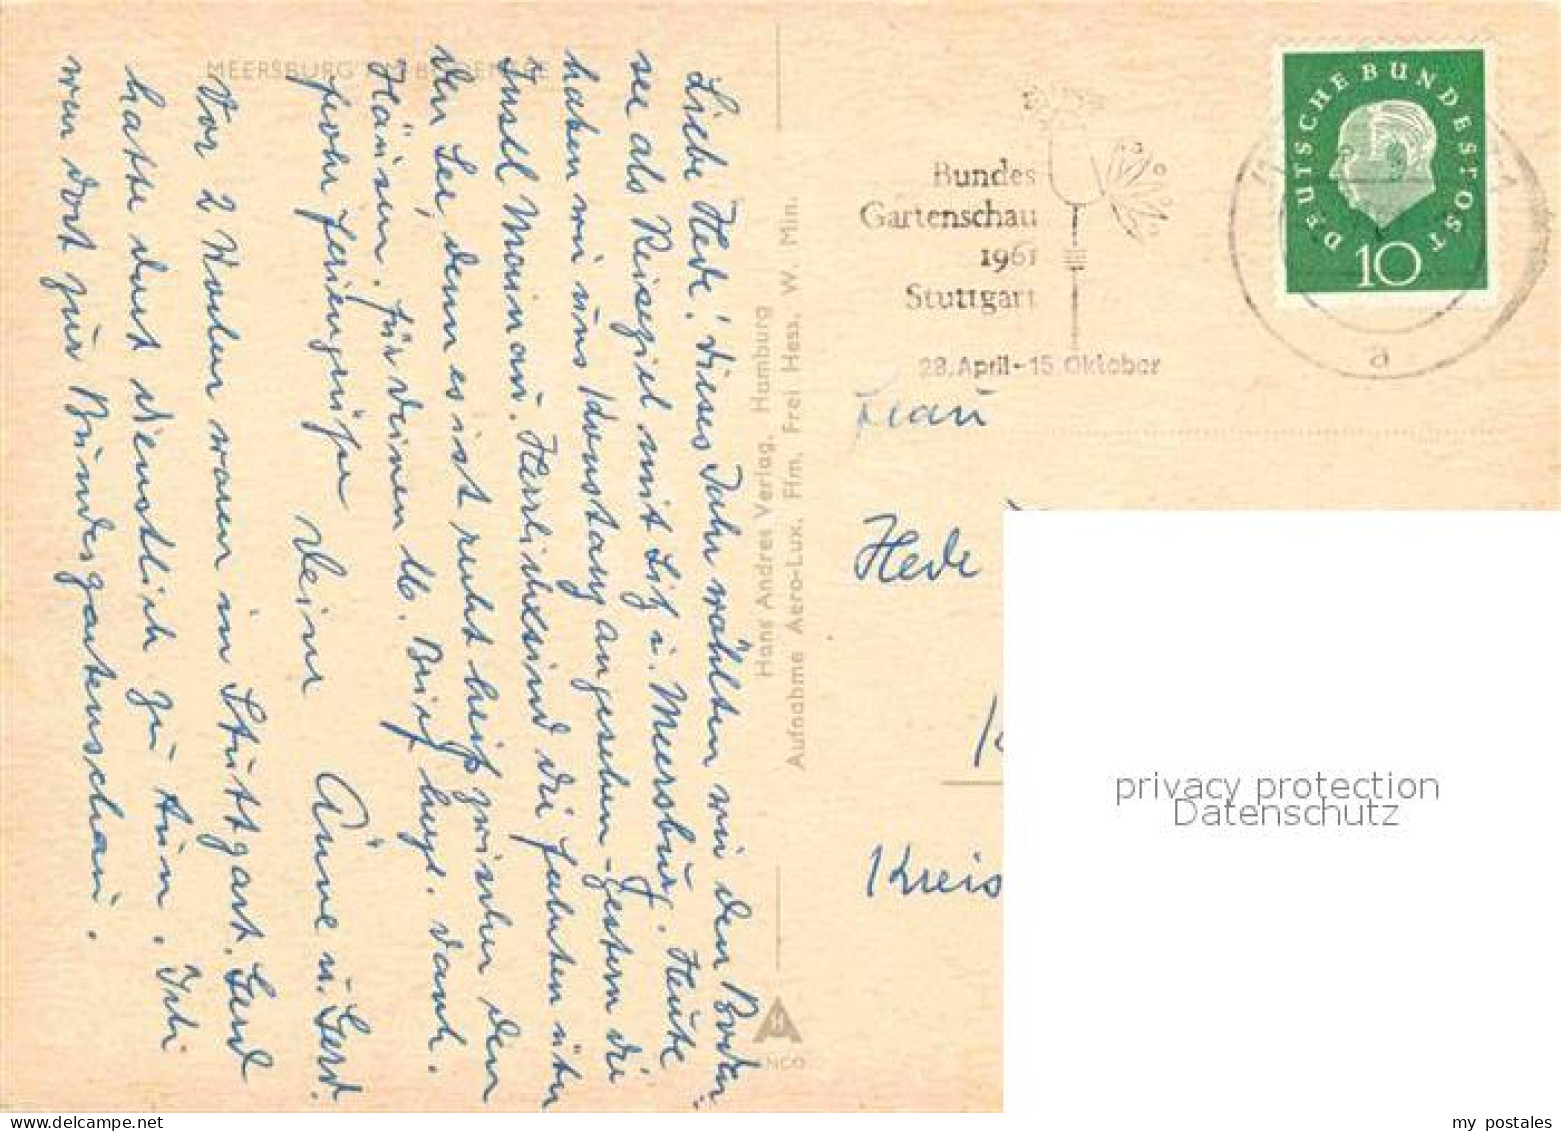 MEERSBURG AM BODENSEE
Liebe Hede! Dieses Jahr wählten wir den Boden-
see als Reiseziel mit Sitz i. Meersburg. Heute
haben wir uns Konstanz angesehen - gestern die
Insel Mainau. Herrlich sind die Fahrten über
den See, denn es ist recht heiß zwischen den
Häusern. Für deinen lb. Brief herzl. Dank.
Frohe Feriengrüße Deine Änne u. Gerd.
Vor 2 Wochen waren in Stuttgart. Gerd
hatte dort dienstlich zu tun. Ich
war dort zur Bundesgartenschau.
Hans Andres Verlag, Hamburg
Aufnahme Aero-Lux, Ffm. Frei Hess. W. Min.
ANCO
Bundes
Gartenschau
1961
Stuttgart
28. April - 15. Oktober
DEUTSCHE BUNDESPOST
10
a
Frau
Hede
Kreis
privacy protection
Datenschutz
my postales